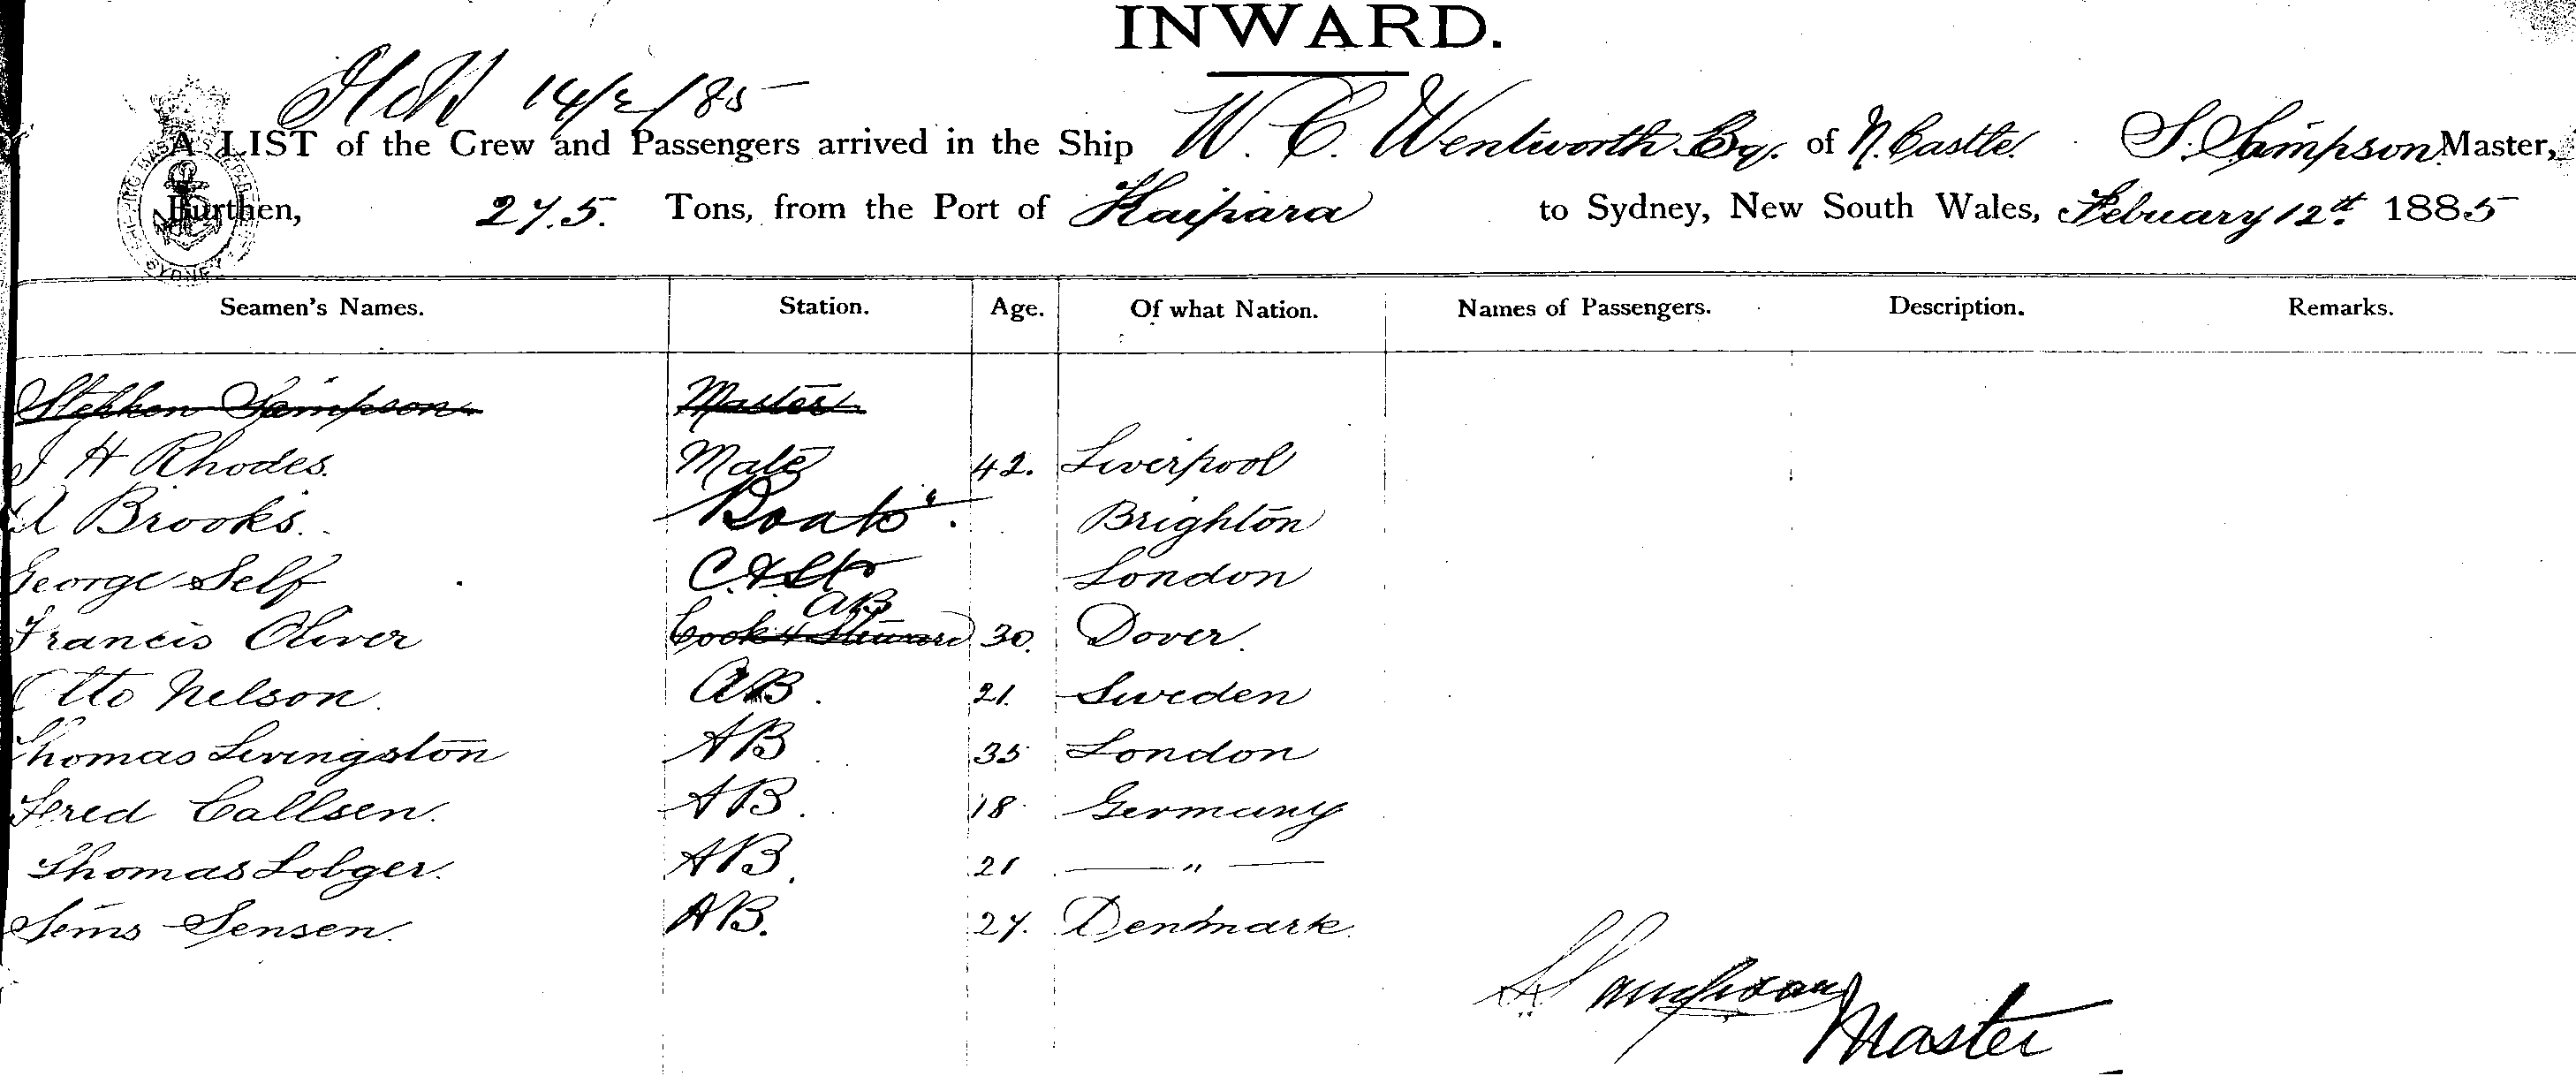 INWARD.
14/2/85
A LIST of the Crew and Passengers arrived in the Ship W. C. Wentworth Esq. of N. Castle. S. Sampson Master,
Burthen, 275. Tons, from the Port of Kaipara to Sydney, New South Wales, Febuary 12th 1885
SYDNEY
Seamen's Names. Station. Age. Of what Nation. Names of Passengers. Description. Remarks.
Stephen Sampson Master
J H Rhodes. Mate 42. Liverpool
A Brooks. Brighton
George Self C. & St London
AB
Francis Oliver Cook & Steward 30. Dover.
Otto Nelson. AB. 21. Sweden
Thomas Livingston AB 35 London
Fred Callsen. AB. 18 Germany
Thomas Lobger. AB. 21 — " —
Jens Jensen. AB. 27. Denmark.
S Sampson
Master